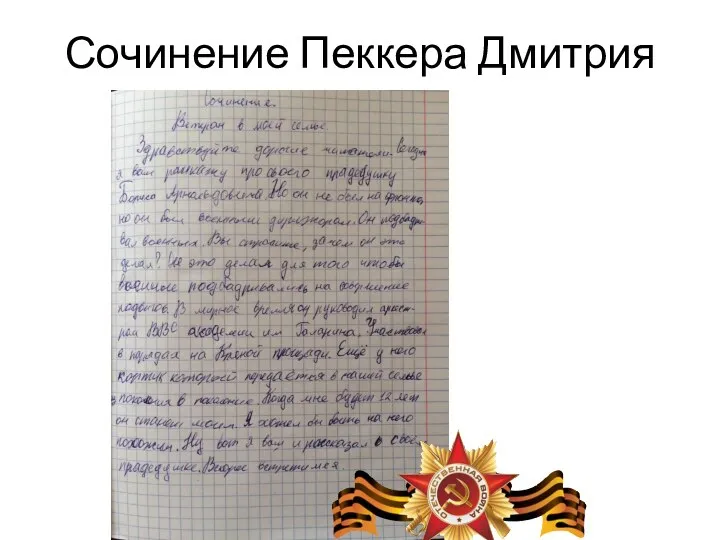 Сочинение Пеккера Дмитрия
Сочинение.
Ветеран в моей семье
Здравствуйте дорогие читатели. Сегодня
я вам расскажу про своего прадедушку
Бориса Арнольдовича. Но он не был на фронте,
но он был военным дирижором. Он подбадри
вал военных. Вы спросите, зачем он это
делал? Он это делал для того чтобы
военные подбадривались на совершение
подвигов. В мирное время он руководил оркест-
ром ВВС академии им Гагарина. Участвовал
в парадах на Красной площади. Ещё у него
кортик который передаётся в нашей семье
из поколения в поколение. Когда мне будет 12 лет
он станет моим. Я хотел бы быть на него
похожим. Ну вот я вам и рассказал о своём
прадедушке. Скоро встретимся.
ОТЕЧЕСТВЕННАЯ ВОЙНА